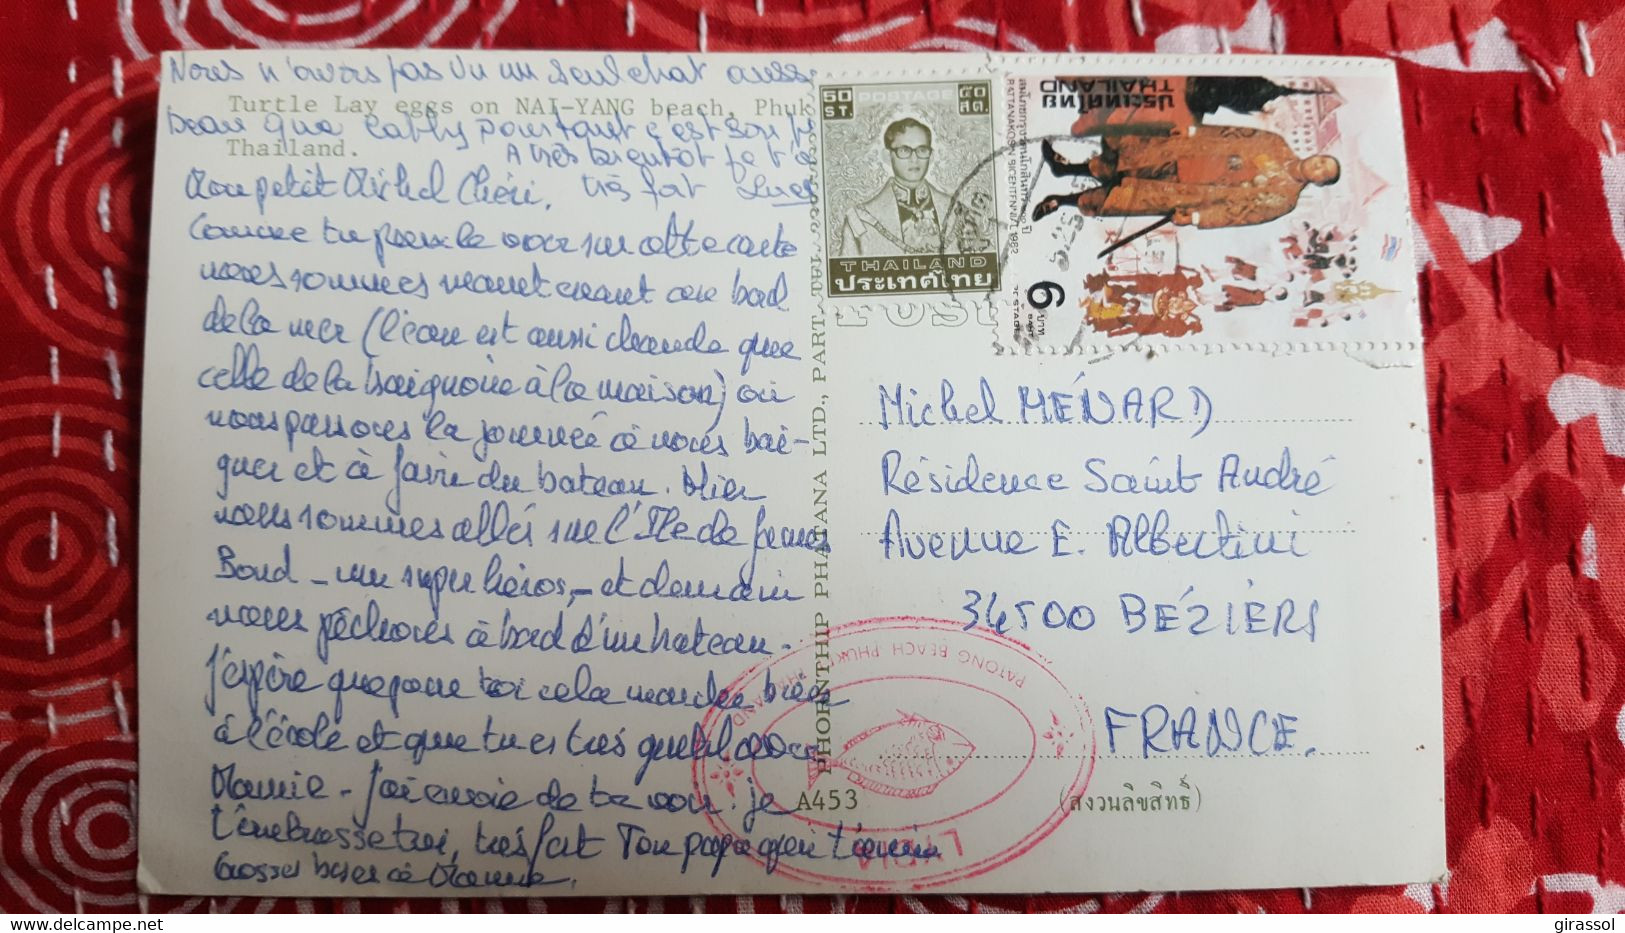 Nous n'avons pas vu un seul chat aussi
Turtle Lay eggs on NAI-YANG beach, Phuk
beau que pourtant c'est son
Thailand.
A très bientôt je t'
Mon petit Michel Chéri, très fort
Comme tu peux le voir sur cette carte
nous sommes maintenant au bord
de la mer (l'eau est aussi chaude que
celle de la baignoire à la maison) où
nous passons la journée à nous bai-
gner et à faire du bateau. Hier
nous sommes allés sur l'Ile de James
Bond - un super héros, - et demain
nous pêchons à bord d'un bateau.
J'espère que pour toi cela marche bien
à l'école et que tu es très gentil avec
Mamie - J'ai envie de te voir. je
t'embrasse très, très fort Ton papa qui t'aime
Grosses bises à Mamie.
PHORNTHIP PHATANA LTD., PART.
50 ST.
POSTAGE
๕๐ สต.
THAILAND
ประเทศไทย
ประเทศไทย
THAILAND
RATTANAKOSIN BICENTENNIAL 1982
6
บาท
BAHT
POSTAGE
Michel MÉNARD
Résidence Saint André
Avenue E. Albertini
34500 BÉZIERS
FRANCE.
PATONG BEACH PHUKET THAILAND
A453
(สงวนลิขสิทธิ์)
delcampe.net
girassol